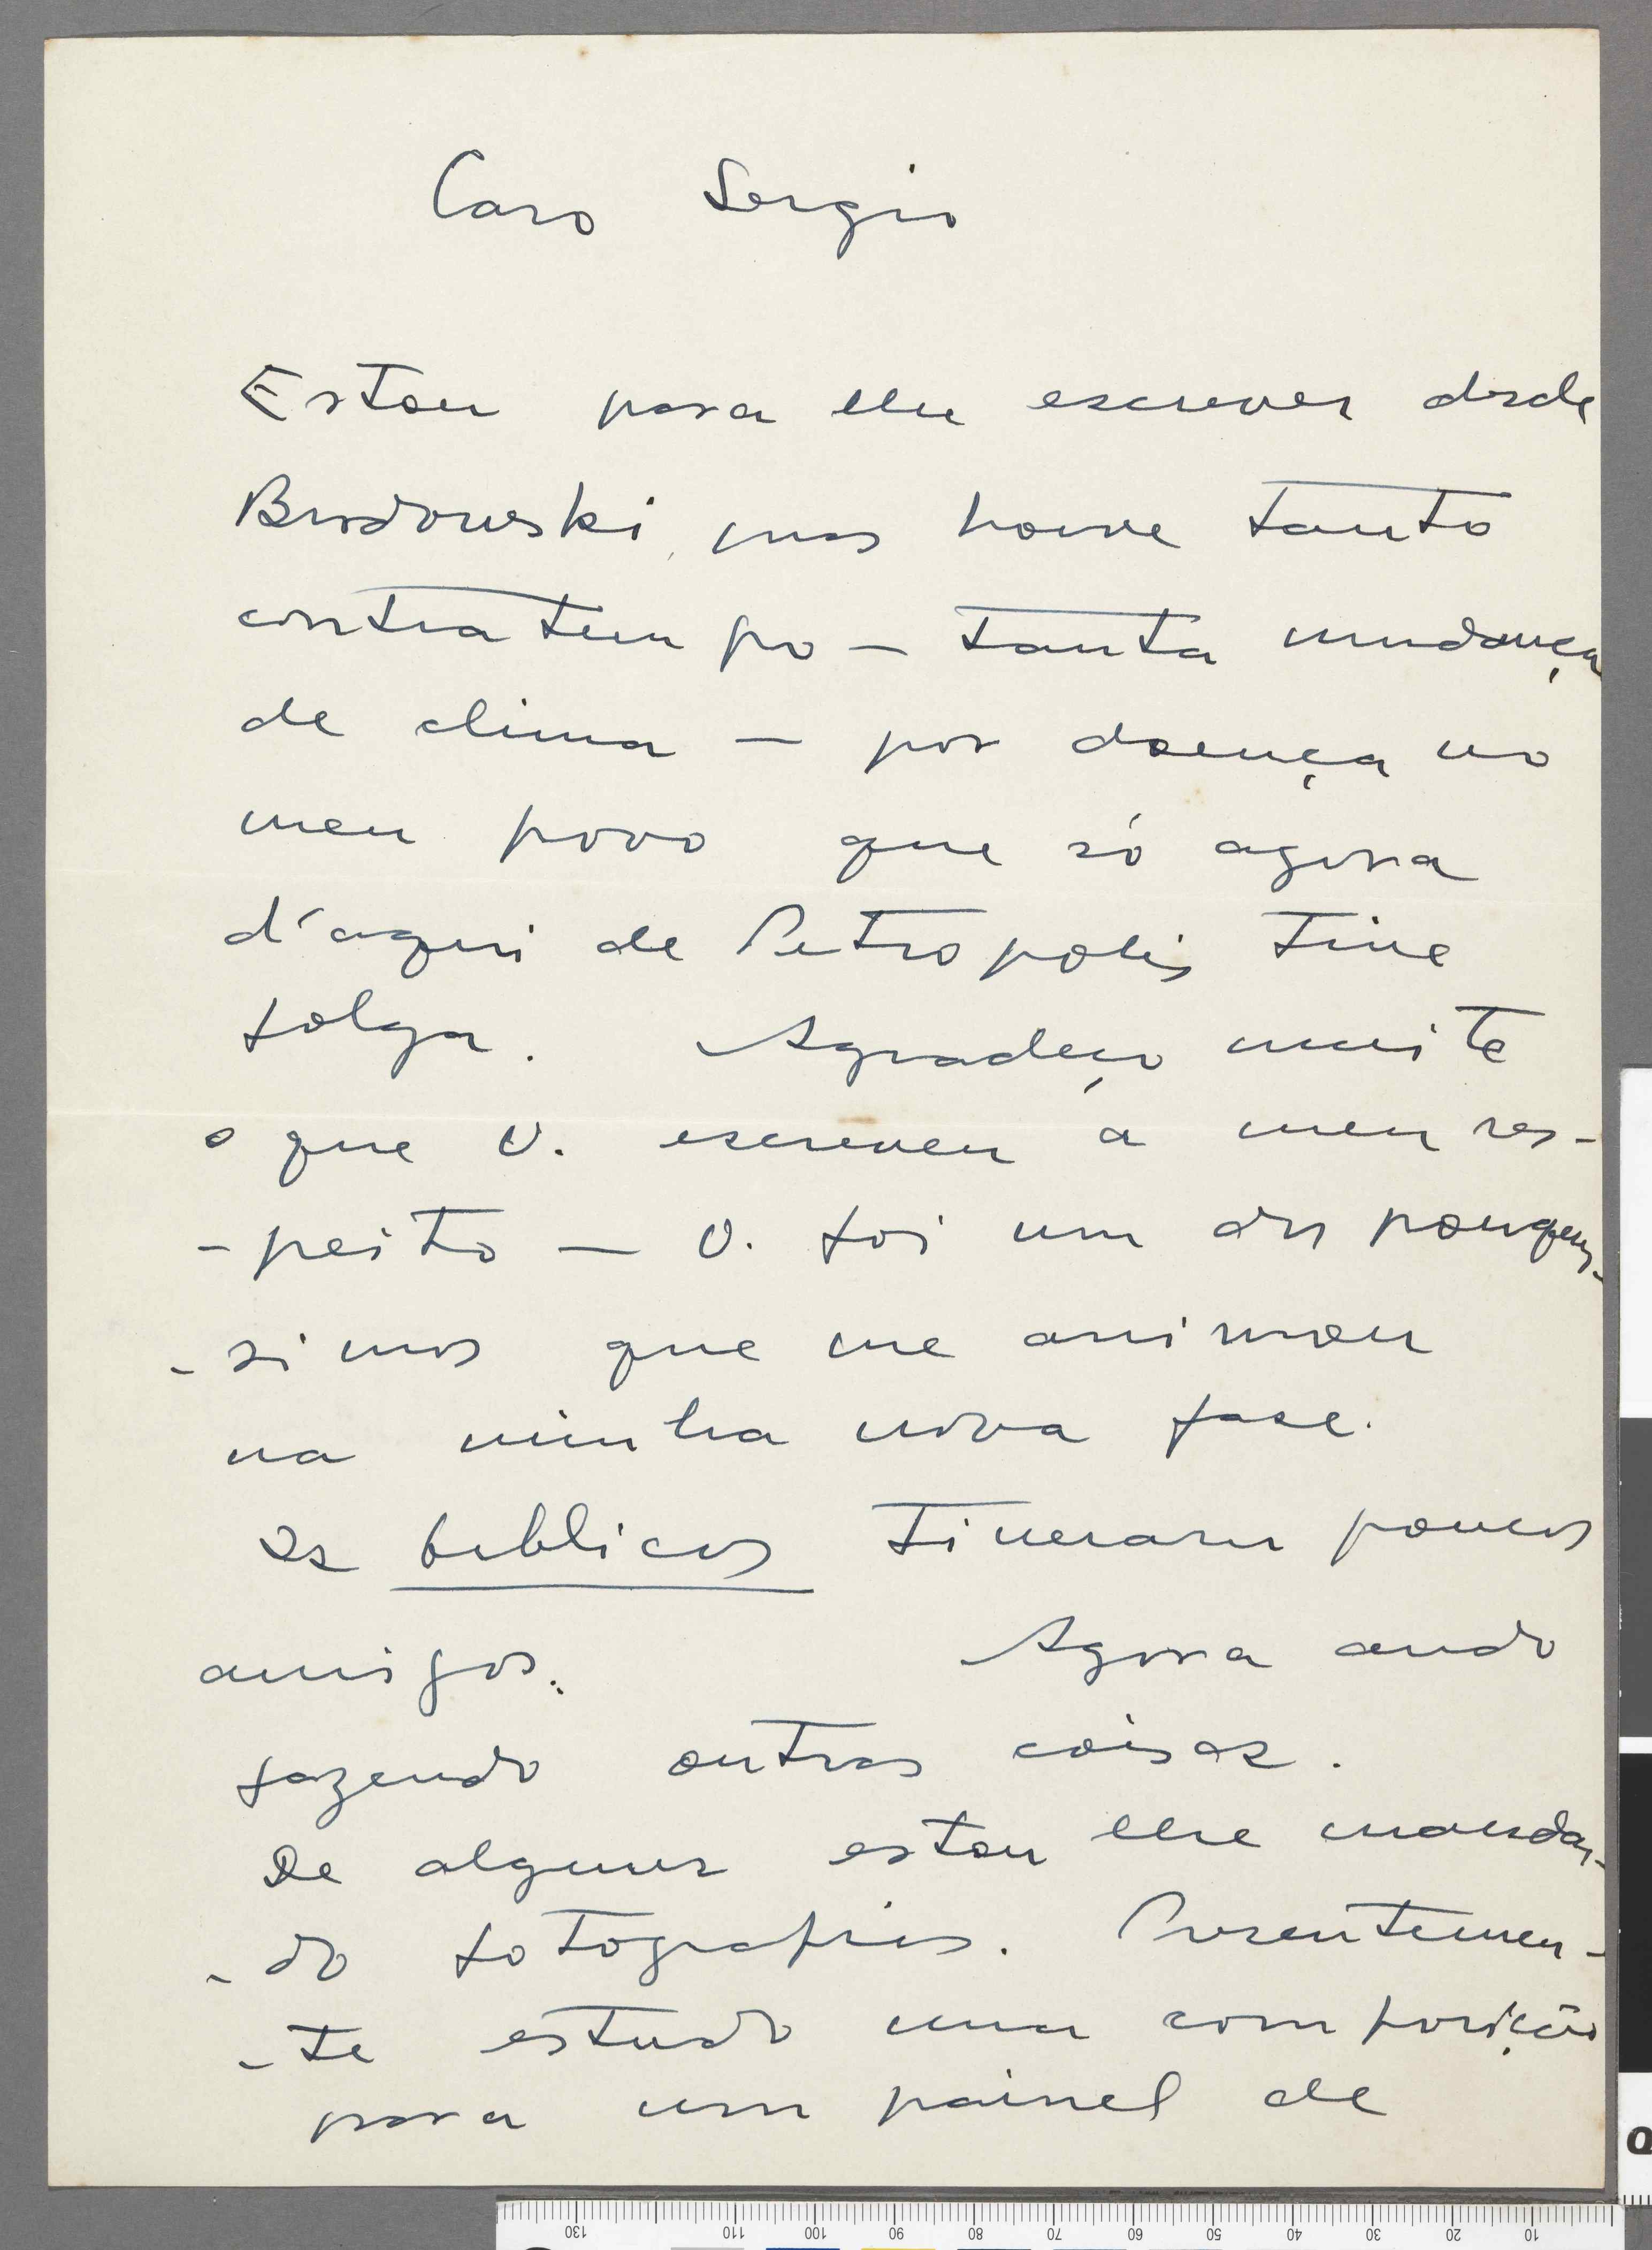 Caro Sergio
Estou para lhe escrever desde
Brodowski, mas houve tanto
contratempo — tanta mudança
de clima — por doença no
meu povo que só agora
d'aqui de Petropolis tive
folga. Agradeço muito
o que V. escreveu a meu res-
-peito — V. foi um dos pouquis-
-simos que me animou
na minha nova fase.
Os biblicos tiveram poucos
amigos. Agora ando
fazendo outras coisas.
De algumas estou lhe mandan-
-do fotografias. Presentemen-
-te estudo uma composição
para um painel de
130 110 100 90 80 70 60 50 40 30 20 10